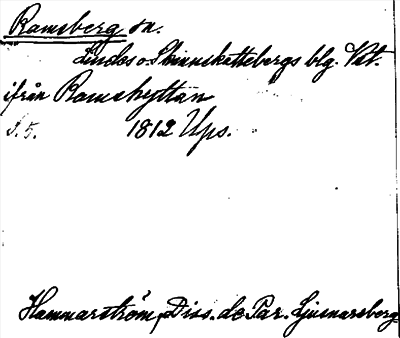 Ramsberg sn.
Lindes o. Skinnskattebergs blg. Vst.
ifrån Ramshyttan
S. 5. 1812 Ups.
Hammarström, Diss. de Par. Ljusnarsberg